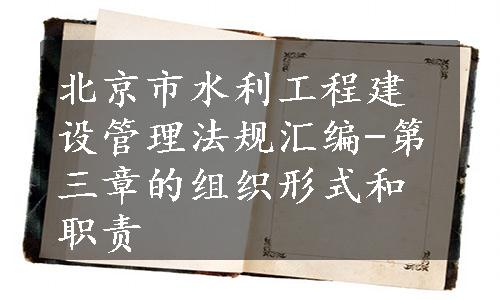 北京市水利工程建
设管理法规汇编-第
三章的组织形式和
职责